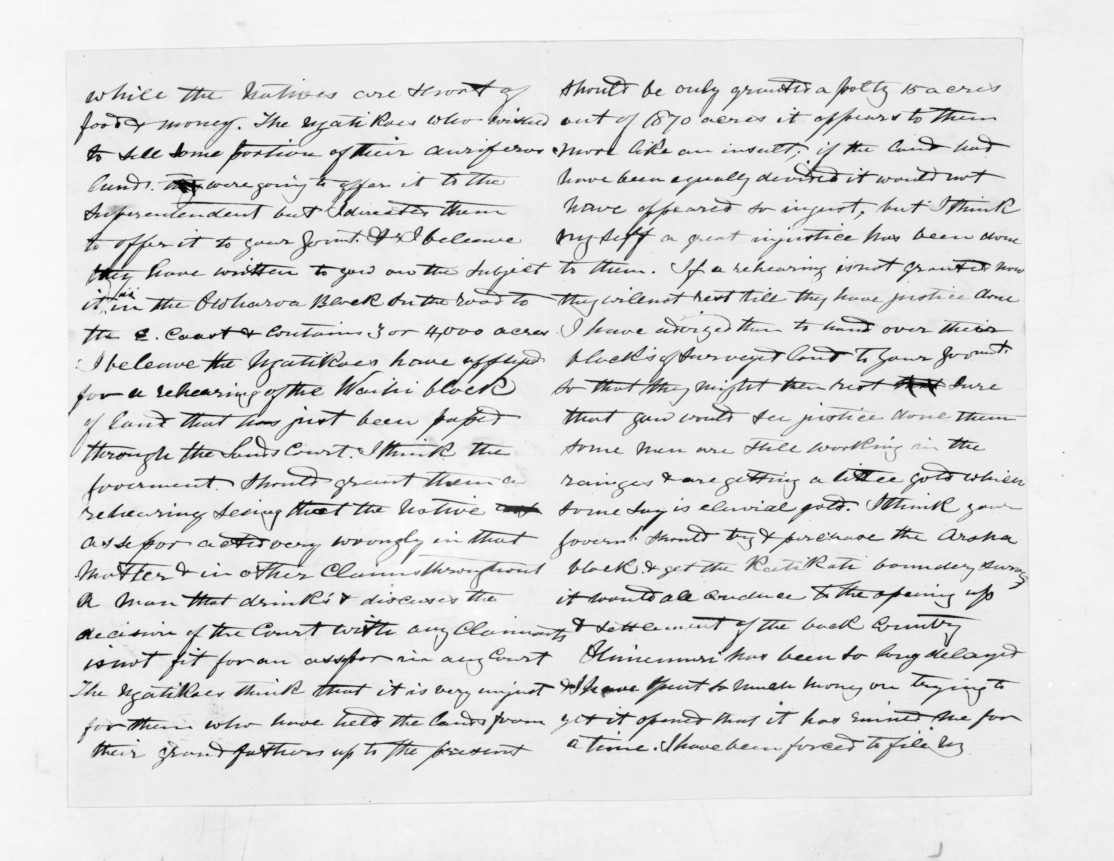 while the Natives are short of
food & money. The Ngatikoes who wished
to sell some portion of their auriferos
lands. were going to offer it to the
Superentendent but I directed them
to offer it to your Govmt. & I beleave
they have written to you on the subject
it is in the Owharoa Block on the road to
the E. Coast & contains 3 or 4,000 acres
I beleave the Ngatikoes have applied
for a rehearing of the Waihi block
of land that has just been passed
through the Lands Court. I think the
Goverment should grant them a
rehearing seeing that the Native
assessor acted very wrongly in that
Matter & in other Claims throughout
A man that drink's & discuses the
decision of the Court with any Claimants
is not fit for an assessor in any Court
The Ngatikoes think that it is very unjust
for them who have held the lands from
their grand fathers up to the present
should be only granted a paltry 15 acres
out of 1870 acres it appears to them
more like an insult, if the land had
have been equally divided it would not
have appeared so injust, but I think
my self a great injustice has been done
to them. If a rehearing is not granted now
they will not rest till they have justice done
I have advized them to hand over their
block's of surveyed land to your Govmt.
so that they might then rest sure
that you would see justice done them
some men are still working in the
ranges & are getting a little gold which
some say is eluvial gold. I think your
Governt. should try & purchase the Aroha
block & get the Katikati boundery survey
it would all conduce to the opening up
& settlement of the back Country
Ohinemuri has been so long delayed
& I have spent so much money on trying to
get it opened that it has ruined me for
a time. I have been forced to file my